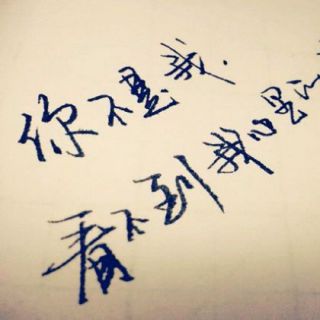 你不是我.
看不到我心里